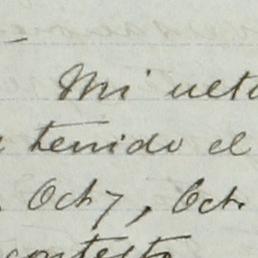 Mi ulti
tenido el
Oct 7, Oct.
contesto